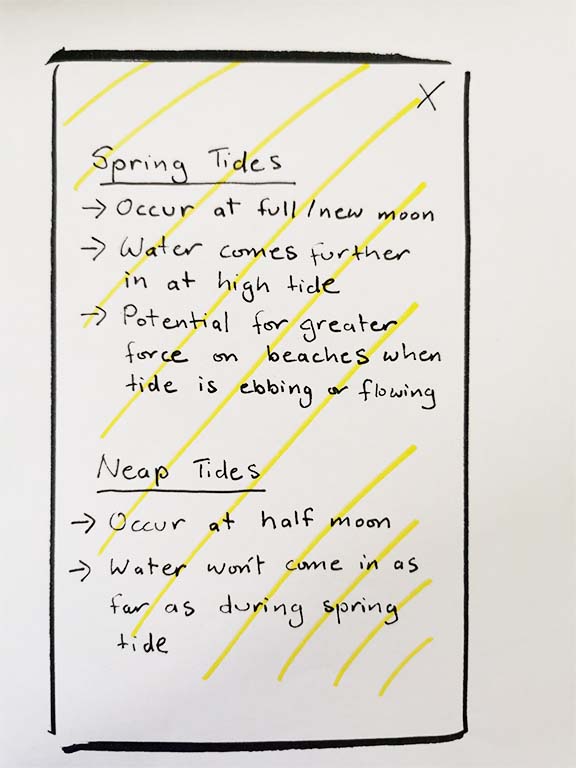 X
Spring Tides
→ Occur at full/new moon
→ Water comes further
in at high tide
→ Potential for greater
force on beaches when
tide is ebbing or flowing
Neap Tides
→ Occur at half moon
→ Water won't come in as
far as during spring
tide